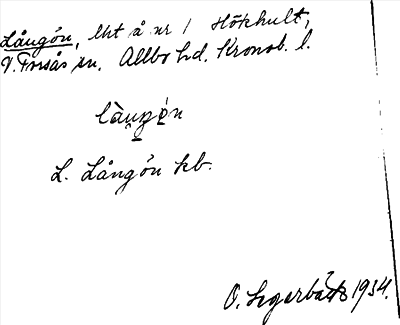 Långön, lht å nr 1 Hökhult,
V. Torsås sn. Allbo hd. Kronob. l.
làŋgø̀n
L. Långön kb.
O. 1934.